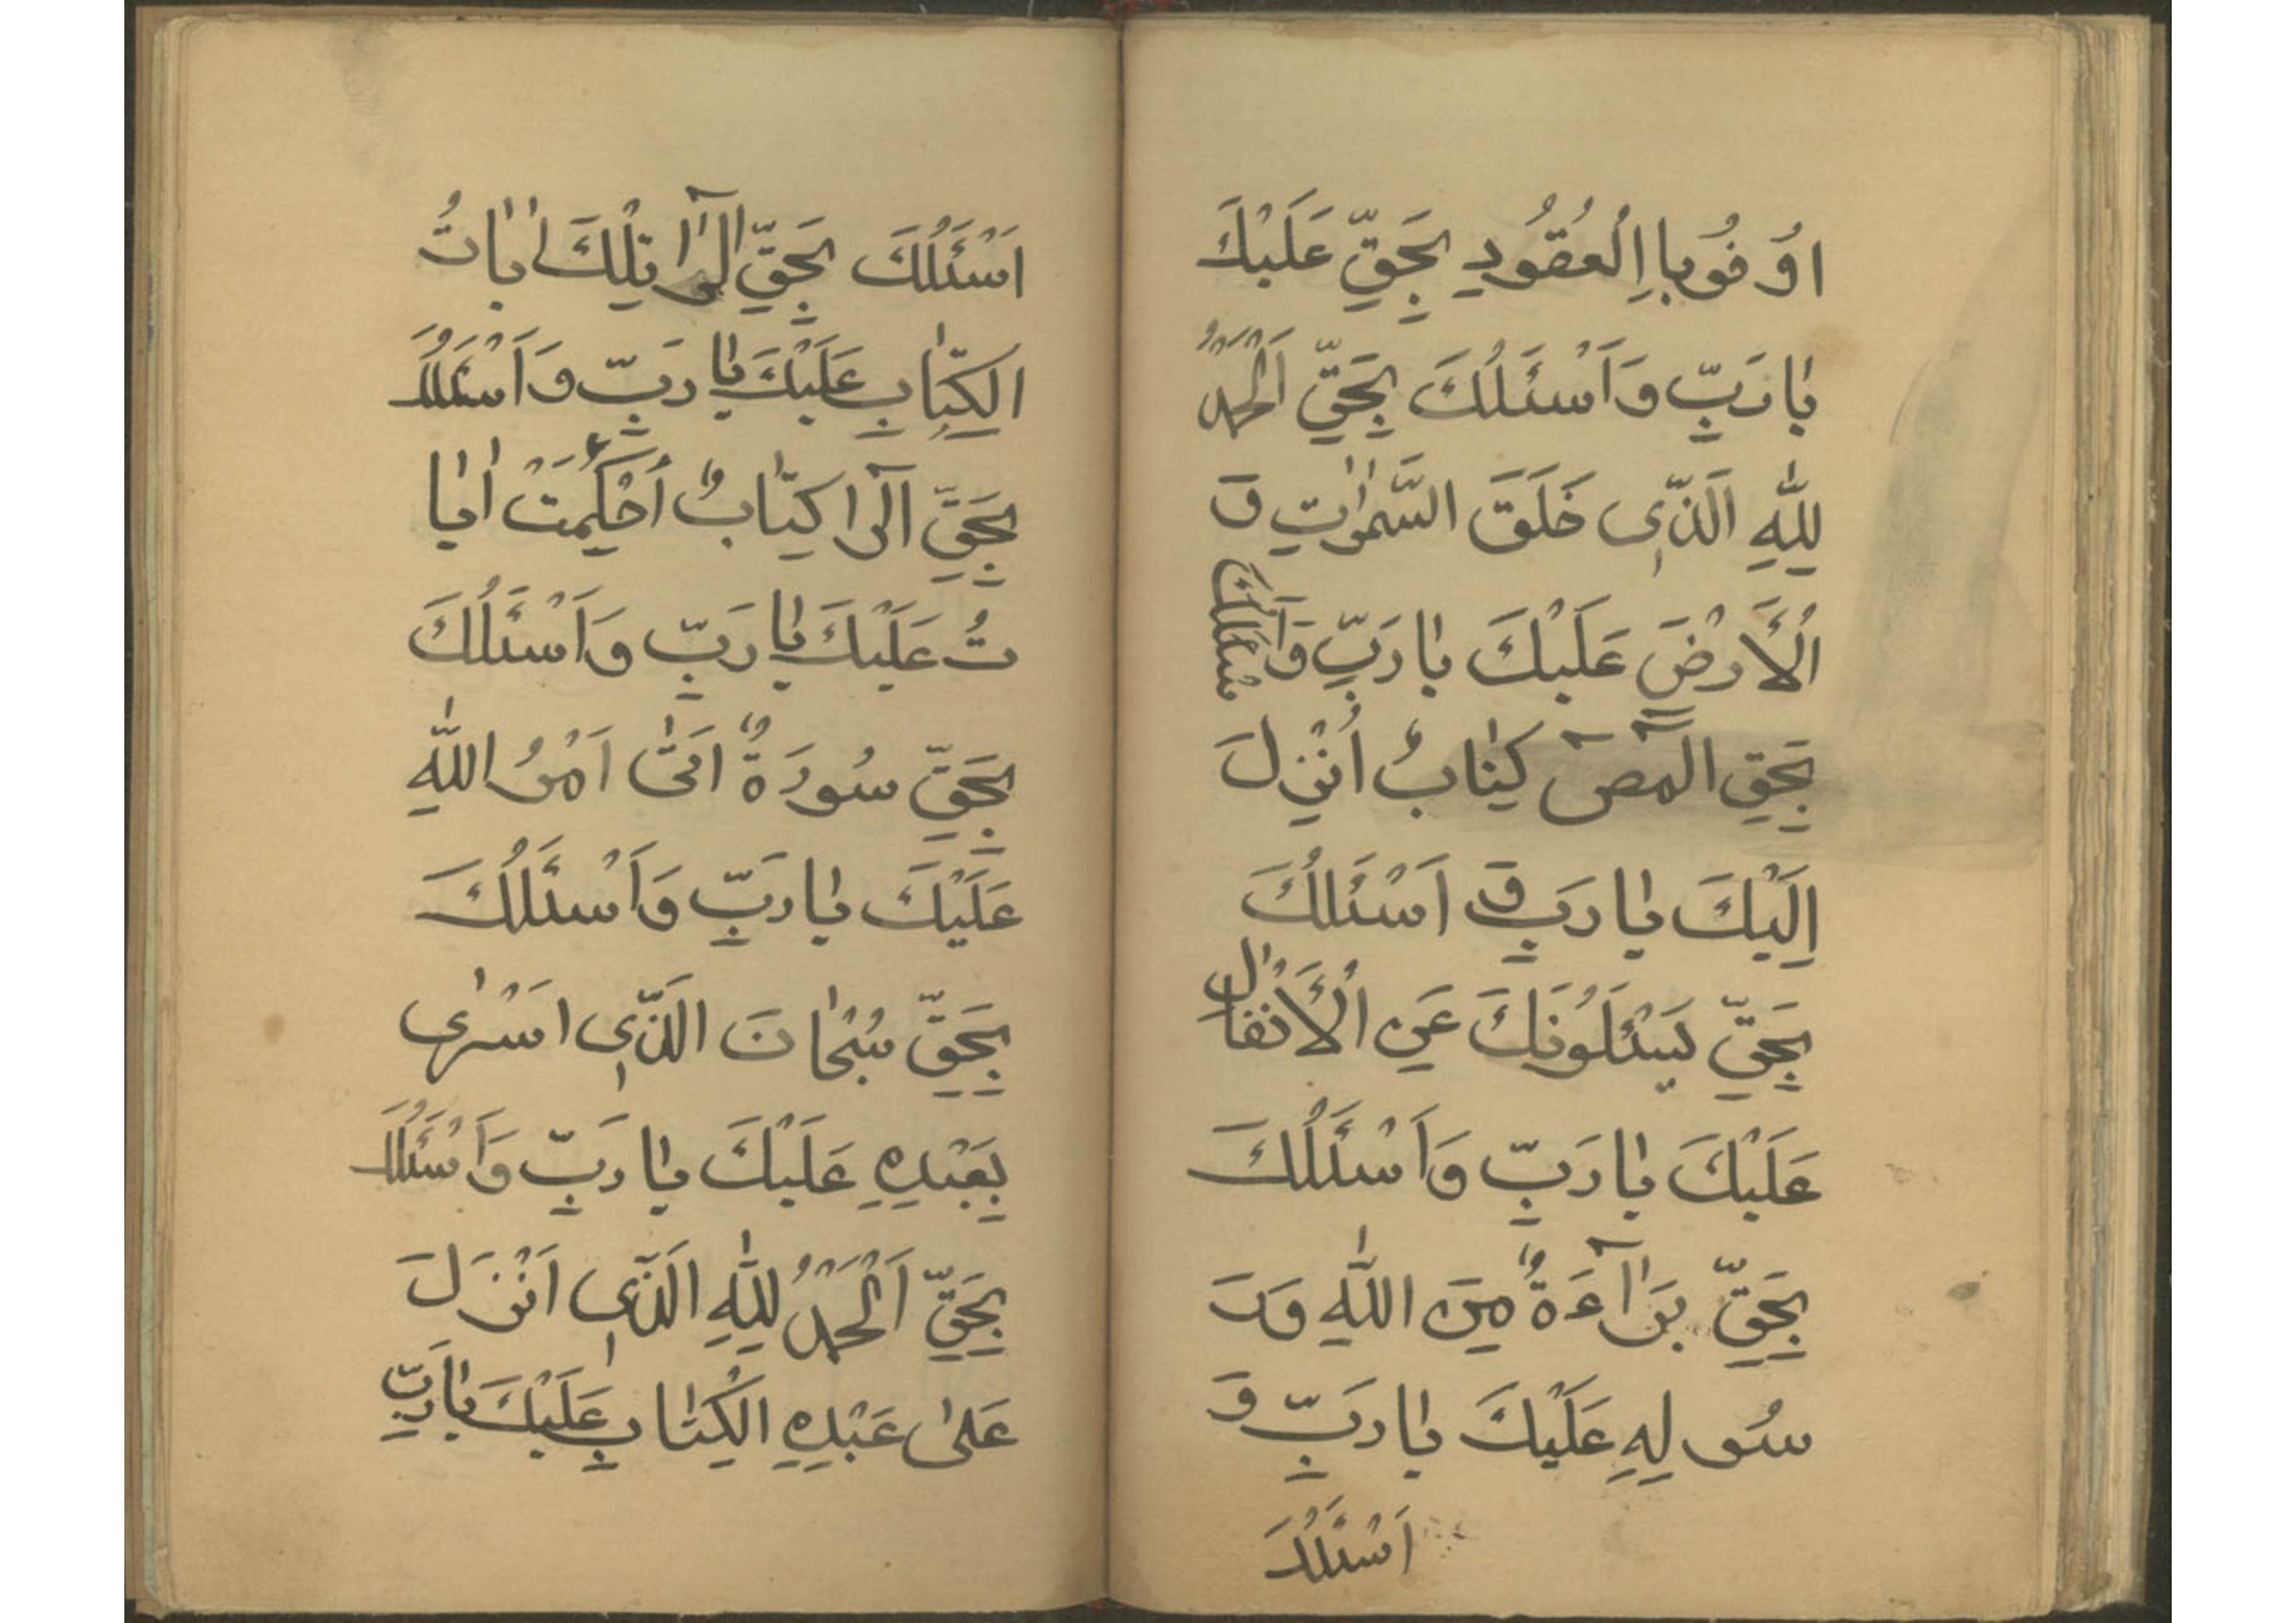 اَوْفُوبااِلْعُقُودِ بِحَقِّ عَلَيْكَ
يٰا رَبِّ وَاَسْئَلُكَ بِحَقِّ اَلْحَمْدُ
لِلّٰهِ الَّذٖى خَلَقَ السَّمٰوٰاتِ وَ
الْاَرْضَ عَلَيْكَ يٰا رَبِّ وَاَسْئَلُكَ
بِحَقِ الٓمٓصٓ كِتٰابٌ اُنْزِلَ
اِلَيْكَ يٰا رَبِّ وَ اَسْئَلُكَ
بِحَقِّ يَسْئَلُونَكَ عَنِ الْاَنْفٰالِ
عَلَيْكَ يٰا رَبِّ وَاَسْئَلُكَ
بِحَقِّ بَرٰآءَةٌ مِنَ اللّٰهِ وَرَ
سُولِهِ عَلَيْكَ يٰا رَبِّ وَ
اَسْئَلُكَ
اَسْئَلُكَ بِحَقِّ الٓرٰا تِلْكَ اٰيٰاتُ
الْكِتٰابِ عَلَيْكَ يٰا رَبِّ وَاَسْئَلُكَ
بِحَقِّ الٓرٰا كِتٰابٌ اُحْكِمَتْ اٰيٰا
تُ عَلَيْكَ يٰا رَبِّ وَاَسْئَلُكَ
بِحَقِّ سُورَةٌ اَتٰى اَمْرُ اللّٰهِ
عَلَيْكَ يٰا رَبِّ وَاَسْئَلُكَ
بِحَقِّ سُبْحٰانَ الَّذٖى اَسْرٰى
بِعَبْدِهِ عَلَيْكَ يٰا رَبِّ وَاَسْئَلُكَ
بِحَقِّ اَلْحَمْدُ لِلّٰهِ الَّذٖى اَنْزَلَ
عَلىٰ عَبْدِهِ الْكِتٰابِ عَلَيْكَ يٰا رَبِّ